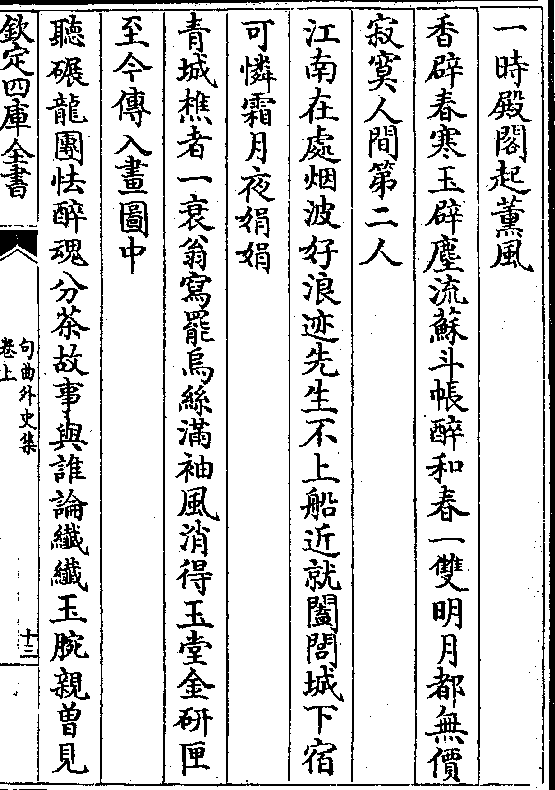 一時殿閣起薰風
香辟春寒玉辟塵流蘇斗帳醉和春一雙明月都無價
寂寞人間第二人
江南在處烟波好浪迹先生不上船近就闔閭城下宿
可憐霜月夜娟娟
青城樵者一衰翁寫罷烏絲滿袖風消得玉堂金硏匣
至今傳入畫圖中
聽碾龍團怯醉魂分茶故事與誰論纖纖玉腕親曾見
欽定四庫全書
句曲外史集
卷上
十三